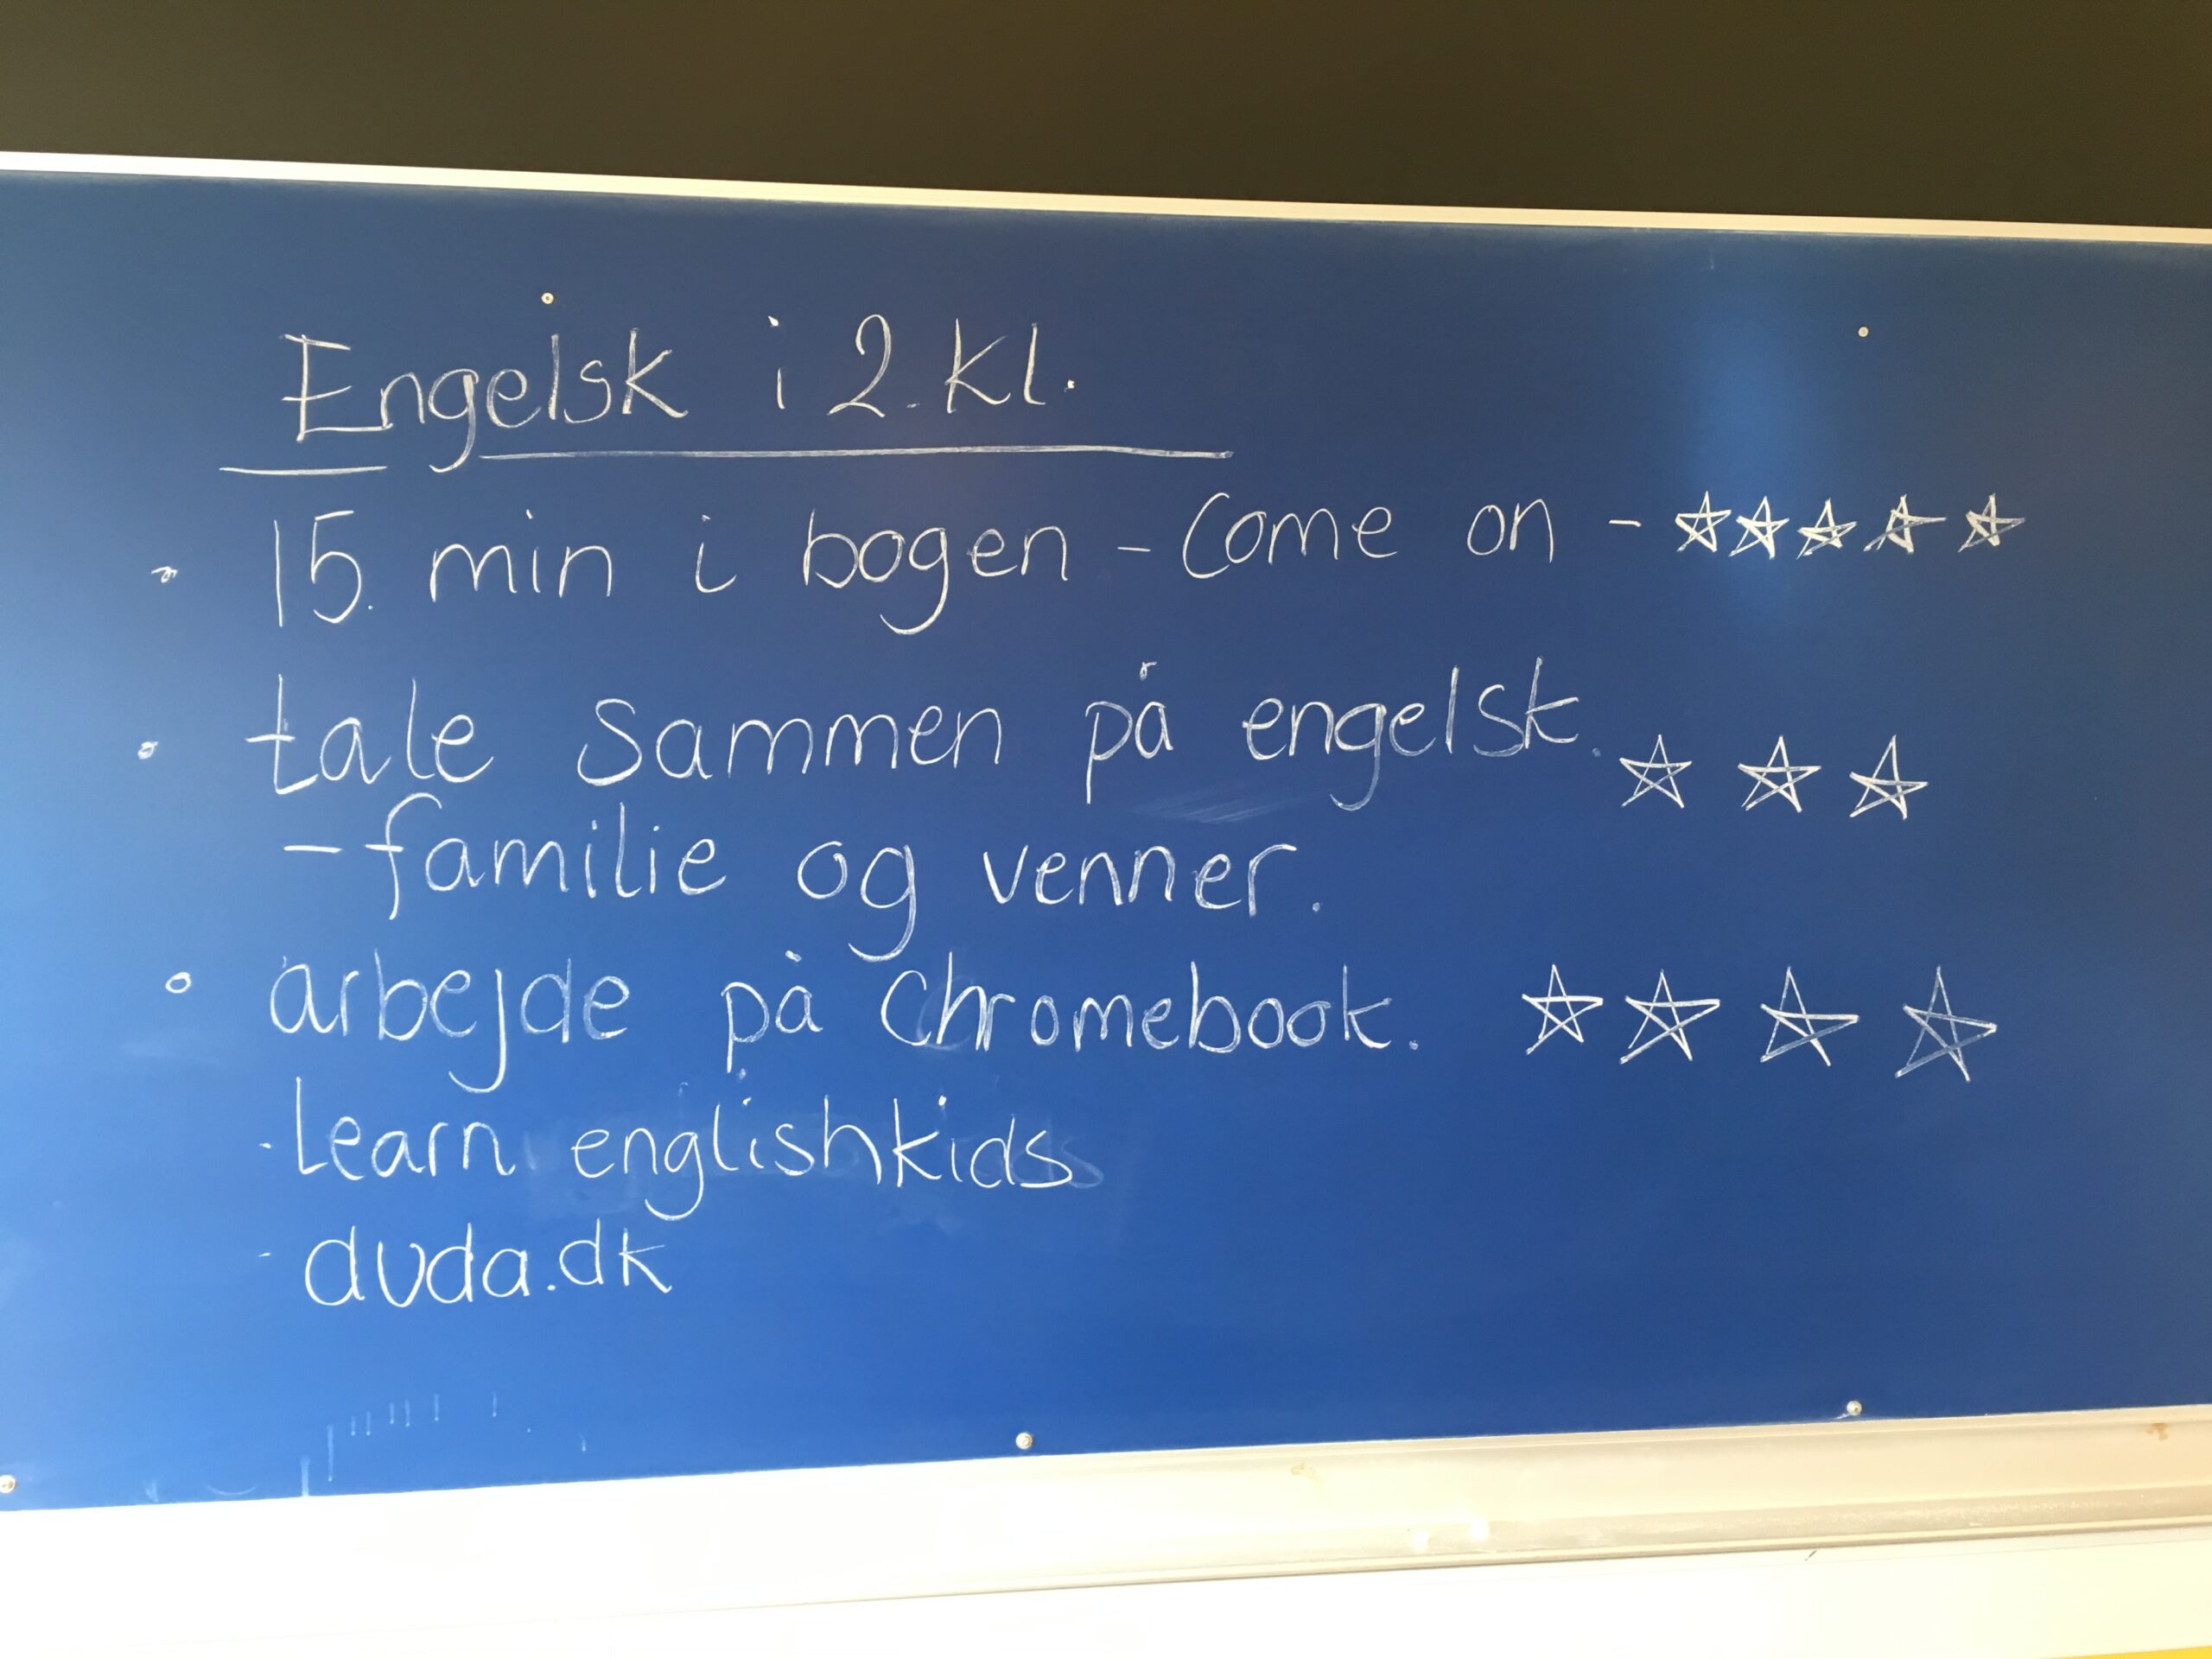 Engelsk i 2.kl.
• 15. min i bogen - Come on - ☆☆☆☆☆
• tale sammen på engelsk. ☆☆☆
- familie og venner.
• arbejde på Chromebook. ☆☆☆☆
- Learn englishkids
- duda.dk